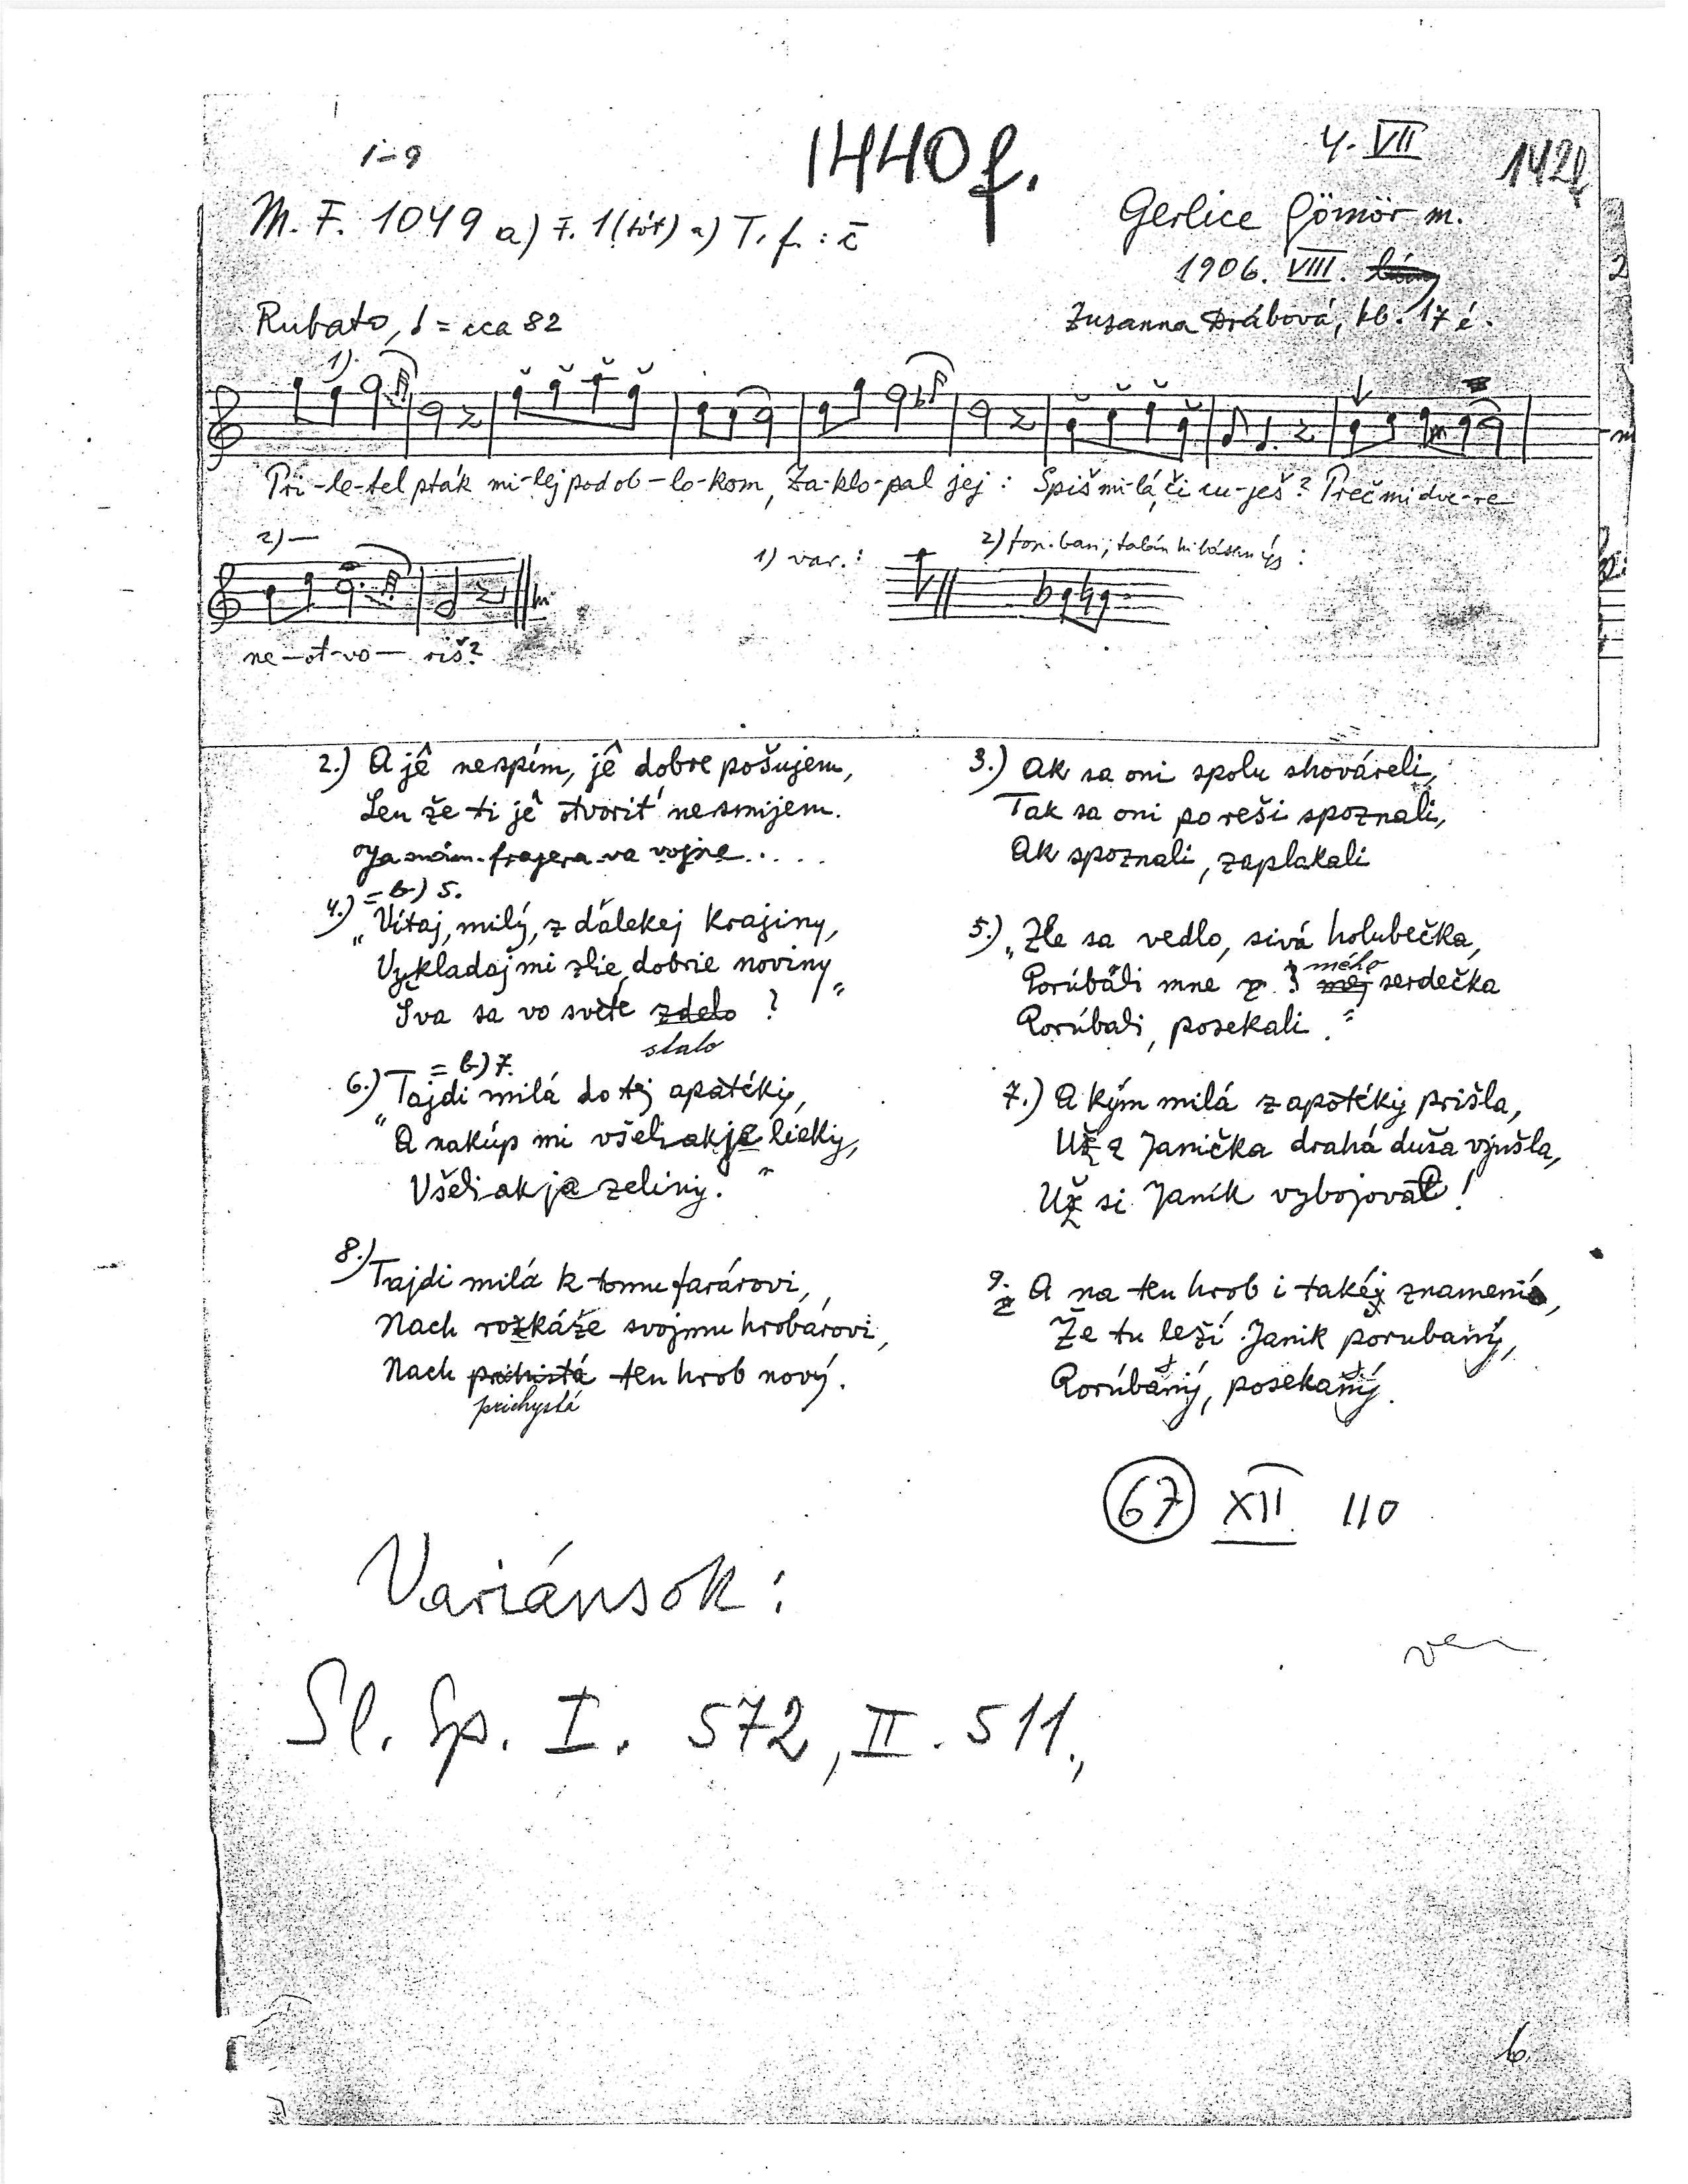 1-9
1440 f.
4. VII
M. F. 1049 a) F. 1 (tót) a) T. f. : c̄
Gerlice Gömör m.
1906. VIII.
Rubato, = cca 82
Zuzanna Drábová, kb. 17 é.
1)
Pri-le-tel pták mi-lej pod ob-lo-kom, Za-klo-pal jej: Spiš mi-lá, či cu-ješ? Preč mi dve-re
2)
1) var.:
2) fon.-ban; talán hibásan így:
ne-ot-vo-riš?
2.) A jê nespím, jê dobre pošujem,
Len že ti jê otvorit' nesmijem.
Ja mám frajera va vojne.....
3.) Ak sa oni spolu shováreli,
Tak sa oni po reši spoznali,
Ak spoznali, zaplakali
= b) 5.
4.) „Vítaj, milý, z ďálekej krajiny,
Vykladaj mi zlie, dobrie noviny
Šva sa vo světe zdelo ?"
stalo
5.) „Zle sa vedlo, sivá holubečka,
mého
Porúbali mne z mej serdečka
Porúbali, posekali."
= b) 7.
6.) „Tajdi milá do tej apatéky,
A nakúp mi všeliakje lieky,
Všeliakja zeliny."
7.) A kým milá z apotéky prišla,
Už z Janíčka drahá duša vyušla,
Už si Janík vybojoval!
8.) Tajdi milá k tomu farárovi,
Nach rozkáže svojmu hrobárovi,
Nach prihistá ten hrob nový.
prichystá
9. A na ten hrob i takéj znamenie,
Že tu leží Janik porubaný,
Porúbaný, posekaný.
67 XII 110
Variánsok:
Sl. Sp. I. 572, II. 511.,
6